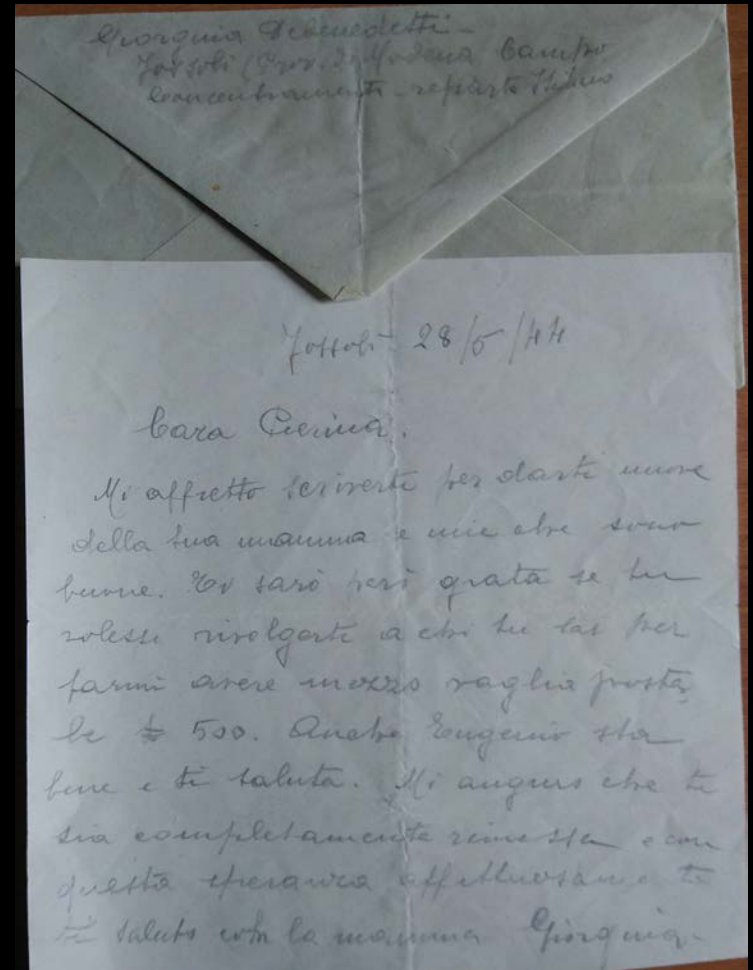 Giorgina Debenedetti -
Fossoli (Prov. di Modena Campo
Concentramento - reparto
Fossoli 28/5/44
Cara Pierina.
Mi affretto scriverti per darti nuove
della tua mamma e mie che sono
buone. Ti sarò però grata se tu
volessi rivolgerti a chi tu sai per
farmi avere mezzo vaglia posta
le £ 500. Anche Eugenio sta
bene e ti saluta. Mi auguro che ti
sia completamente rimessa e con
questa speranza affettuosamente
ti saluto con la mamma Giorgina